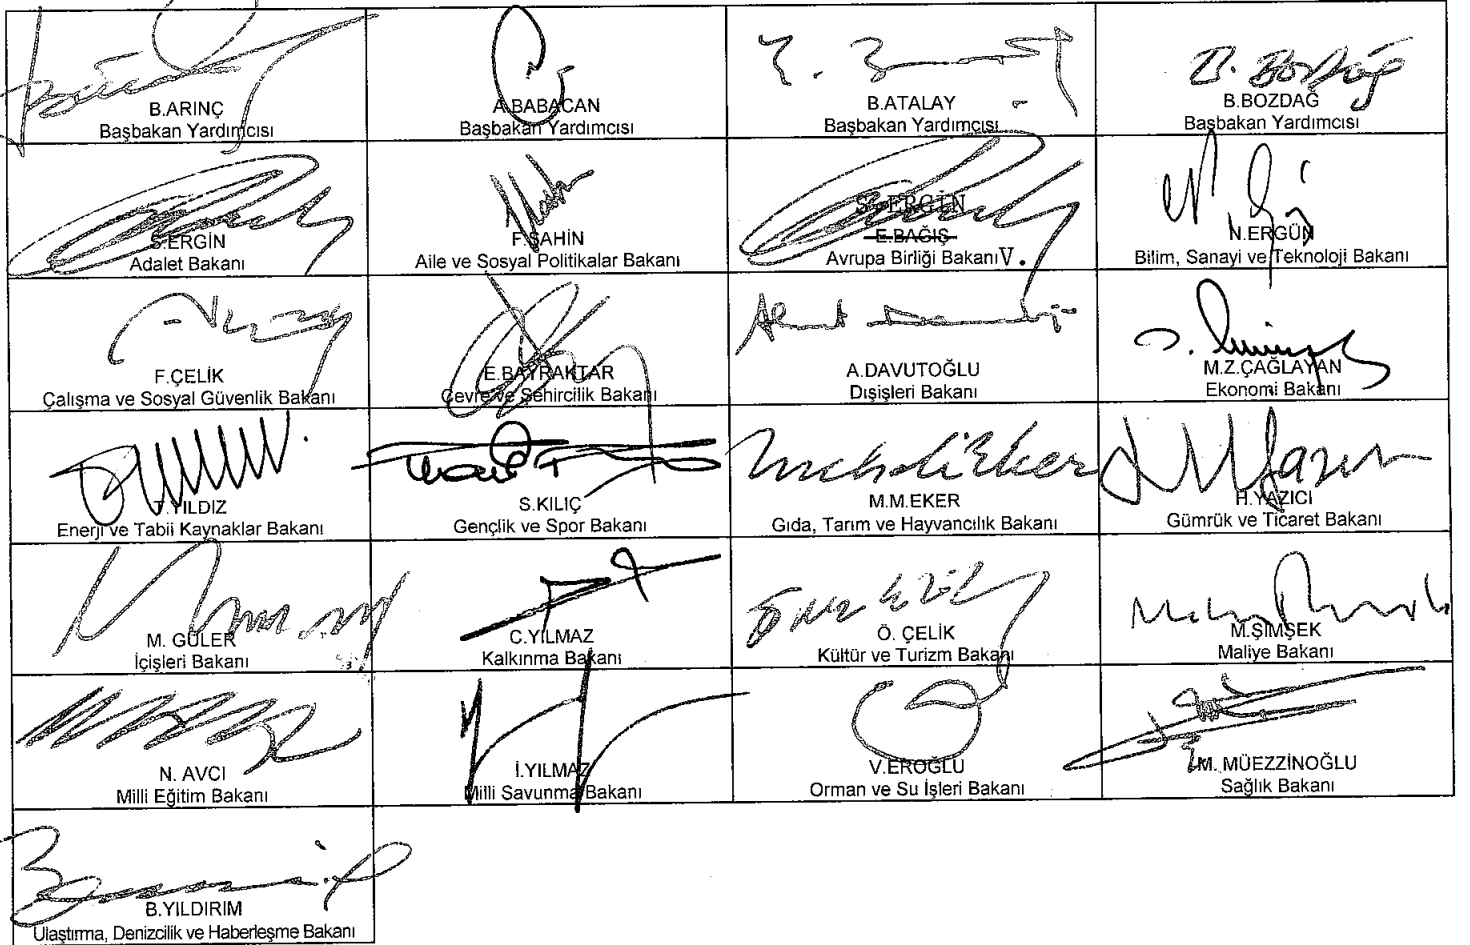 B.ARINÇ
Başbakan Yardımcısı
A.BABACAN
Başbakan Yardımcısı
B.ATALAY
Başbakan Yardımcısı
B. Bozdağ
B.BOZDAĞ
Başbakan Yardımcısı
S.ERGİN
Adalet Bakanı
F.ŞAHİN
Aile ve Sosyal Politikalar Bakanı
S.ERGİN
E.BAĞIŞ
Avrupa Birliği Bakanı V.
N.ERGÜN
Bilim, Sanayi ve Teknoloji Bakanı
F.ÇELİK
Çalışma ve Sosyal Güvenlik Bakanı
E.BAYRAKTAR
Çevre ve Şehircilik Bakanı
A.DAVUTOĞLU
Dışişleri Bakanı
M.Z.ÇAĞLAYAN
Ekonomi Bakanı
T.YILDIZ
Enerji ve Tabii Kaynaklar Bakanı
S.KILIÇ
Gençlik ve Spor Bakanı
M.M.EKER
Gıda, Tarım ve Hayvancılık Bakanı
H.YAZICI
Gümrük ve Ticaret Bakanı
M. GÜLER
İçişleri Bakanı
C.YILMAZ
Kalkınma Bakanı
Ö. ÇELİK
Kültür ve Turizm Bakanı
M.ŞİMŞEK
Maliye Bakanı
N. AVCI
Milli Eğitim Bakanı
İ.YILMAZ
Milli Savunma Bakanı
V.EROĞLU
Orman ve Su İşleri Bakanı
M. MÜEZZİNOĞLU
Sağlık Bakanı
B.YILDIRIM
Ulaştırma, Denizcilik ve Haberleşme Bakanı